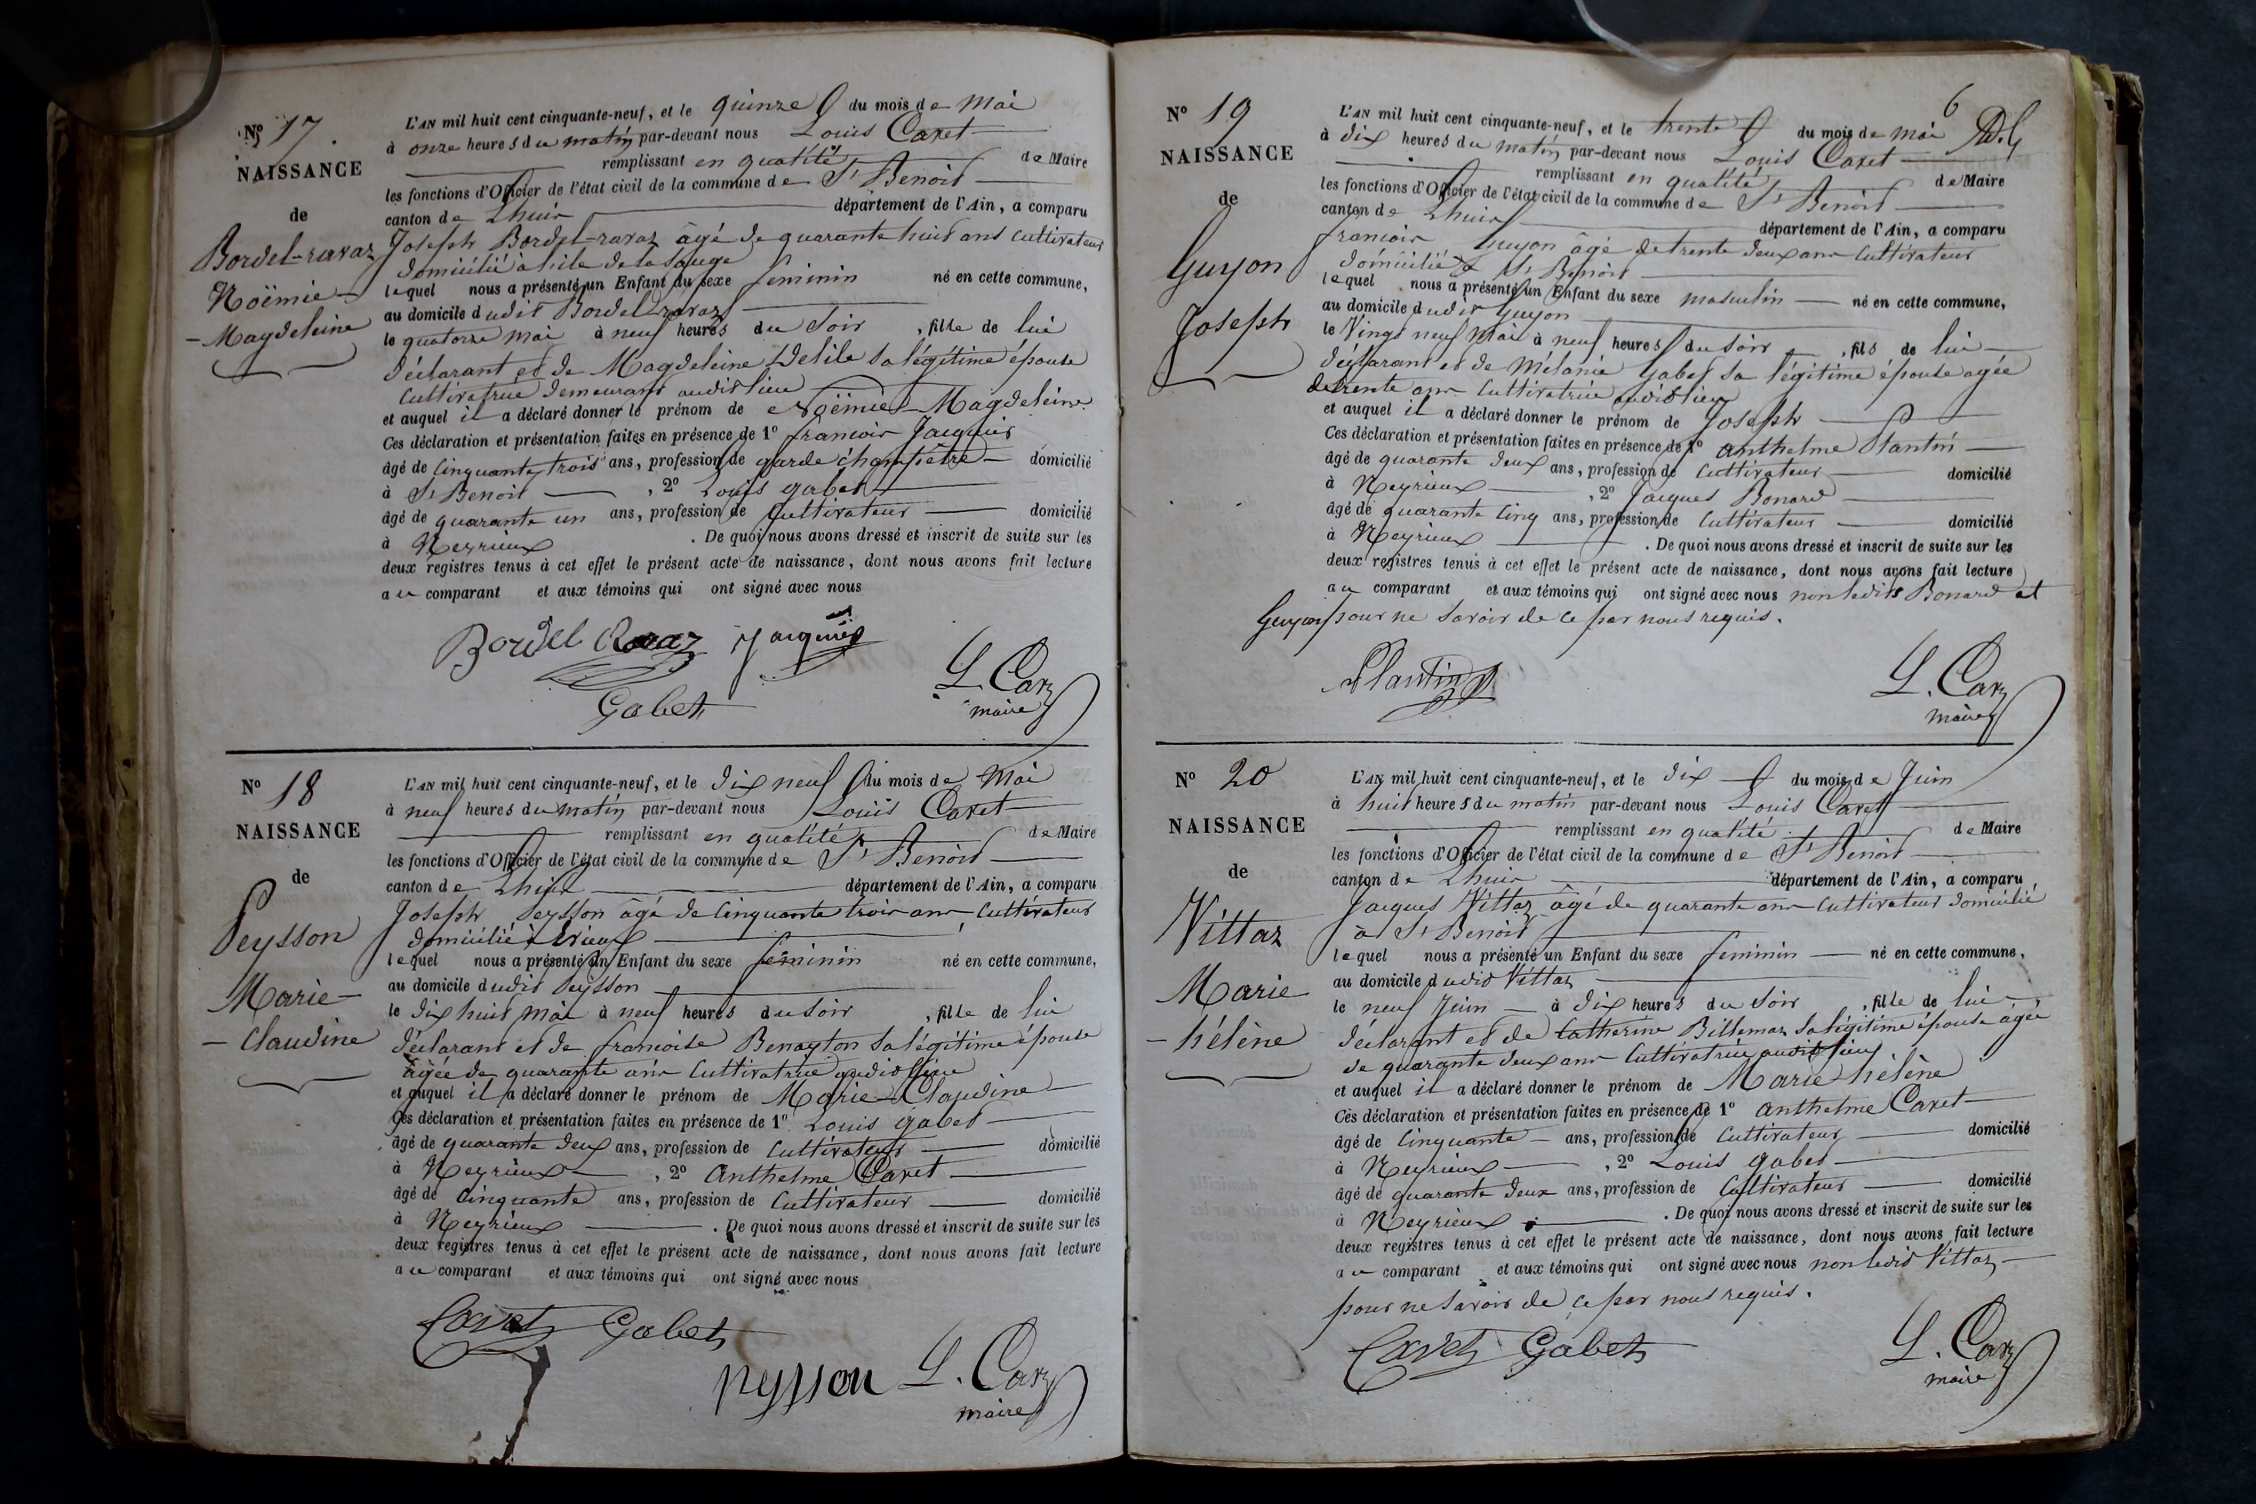 Nº 17.
NAISSANCE
de
Bordel-ravaz
Noëmie-
Magdeleine
L'AN mil huit cent cinquante-neuf, et le quinze du mois de Mai
à onze heures du matin par-devant nous Louis Caret
remplissant en qualité de Maire
les fonctions d'Officier de l'état civil de la commune de St Benoit
canton de Lhuis département de l'Ain, a comparu
Joseph Bordel-ravaz âgé de quarante huit ans cultivateur
domicilié à l'ile de la Sauge
lequel nous a présenté un Enfant du sexe feminin né en cette commune,
au domicile dudit Bordel-ravaz
le quatorze mai à neuf heures du soir, fille de lui
déclarant et de Magdeleine Delile sa légitime épouse
cultivatrice demeurant audit lieu
et auquel il a déclaré donner le prénom de Noëmie-Magdeleine
Ces déclaration et présentation faites en présence de 1º francois Jacquier
âgé de cinquante trois ans, profession de garde champêtre domicilié
à St Benoit, 2º Louis gabet
âgé de quarante un ans, profession de cultivateur domicilié
à Neyrieux. De quoi nous avons dressé et inscrit de suite sur les
deux registres tenus à cet effet le présent acte de naissance, dont nous avons fait lecture
au comparant et aux témoins qui ont signé avec nous
Bordel Ravaz Jacquier
Gabet L. Caret
maire
Nº 18
NAISSANCE
de
Peysson
Marie-
Claudine
L'AN mil huit cent cinquante-neuf, et le dix neuf du mois de Mai
à neuf heures du matin par-devant nous Louis Caret
remplissant en qualité de Maire
les fonctions d'Officier de l'état civil de la commune de St Benoit
canton de Lhuis département de l'Ain, a comparu
Joseph Peysson âgé de cinquante trois ans cultivateur
domicilié à
lequel nous a présenté un Enfant du sexe feminin né en cette commune,
au domicile dudit Peysson
le dix huit mai à neuf heures du soir, fille de lui
déclarant et de francoise Benayton sa légitime épouse
âgée de quarante ans cultivatrice audit lieu
et auquel il a déclaré donner le prénom de Marie-Claudine
Ces déclaration et présentation faites en présence de 1º Louis gabet
âgé de quarante deux ans, profession de cultivateur domicilié
à Neyrieux, 2º Anthelme Caret
âgé de cinquante ans, profession de cultivateur domicilié
à Neyrieux. De quoi nous avons dressé et inscrit de suite sur les
deux registres tenus à cet effet le présent acte de naissance, dont nous avons fait lecture
au comparant et aux témoins qui ont signé avec nous
Caret Gabet
peysson L. Caret
maire
6
Nº 19
NAISSANCE
de
Guyon
Joseph
L'AN mil huit cent cinquante-neuf, et le trente du mois de mai
à dix heures du matin par-devant nous Louis Caret
remplissant en qualité de Maire
les fonctions d'Officier de l'état civil de la commune de St Benoit
canton de Lhuis département de l'Ain, a comparu
francois Guyon âgé de trente deux ans cultivateur
domicilié à St Benoit
lequel nous a présenté un Enfant du sexe masculin né en cette commune,
au domicile dudit Guyon
le Vingt neuf Mai à neuf heures du soir, fils de lui
déclarant et de Mélanie Gabet sa légitime épouse agée
de trente ans cultivatrice audit lieu
et auquel il a déclaré donner le prénom de Joseph
Ces déclaration et présentation faites en présence de 1º anthelme Plantin
âgé de quarante deux ans, profession de cultivateur domicilié
à Neyrieux, 2º Jacques Bonard
âgé de quarante cinq ans, profession de cultivateur domicilié
à Neyrieux. De quoi nous avons dressé et inscrit de suite sur les
deux registres tenus à cet effet le présent acte de naissance, dont nous avons fait lecture
au comparant et aux témoins qui ont signé avec nous non ledit Bonard et
Guyon pour ne savoir de ce par nous requis.
Plantin L. Caret
maire
Nº 20
NAISSANCE
de
Vittaz
Marie
-hélène
L'AN mil huit cent cinquante-neuf, et le dix du mois de Juin
à huit heures du matin par-devant nous Louis Caret
remplissant en qualité de Maire
les fonctions d'Officier de l'état civil de la commune de St Benoit
canton de Lhuis département de l'Ain, a comparu
Jacques Vittaz âgé de quarante ans cultivateur domicilié
à St Benoit
lequel nous a présenté un Enfant du sexe feminin né en cette commune,
au domicile dudit Vittaz
le neuf Juin à dix heures du soir, fille de lui
déclarant et de Catherine Billemaz sa légitime épouse âgée
de quarante deux ans cultivatrice audit lieu
et auquel il a déclaré donner le prénom de Marie hélène
Ces déclaration et présentation faites en présence de 1º anthelme Caret
âgé de cinquante ans, profession de cultivateur domicilié
à Neyrieux, 2º Louis gabet
âgé de quarante deux ans, profession de cultivateur domicilié
à Neyrieux. De quoi nous avons dressé et inscrit de suite sur les
deux registres tenus à cet effet le présent acte de naissance, dont nous avons fait lecture
au comparant et aux témoins qui ont signé avec nous non ledit Vittaz
pour ne savoir de ce par nous requis.
Caret Gabet L. Caret
maire